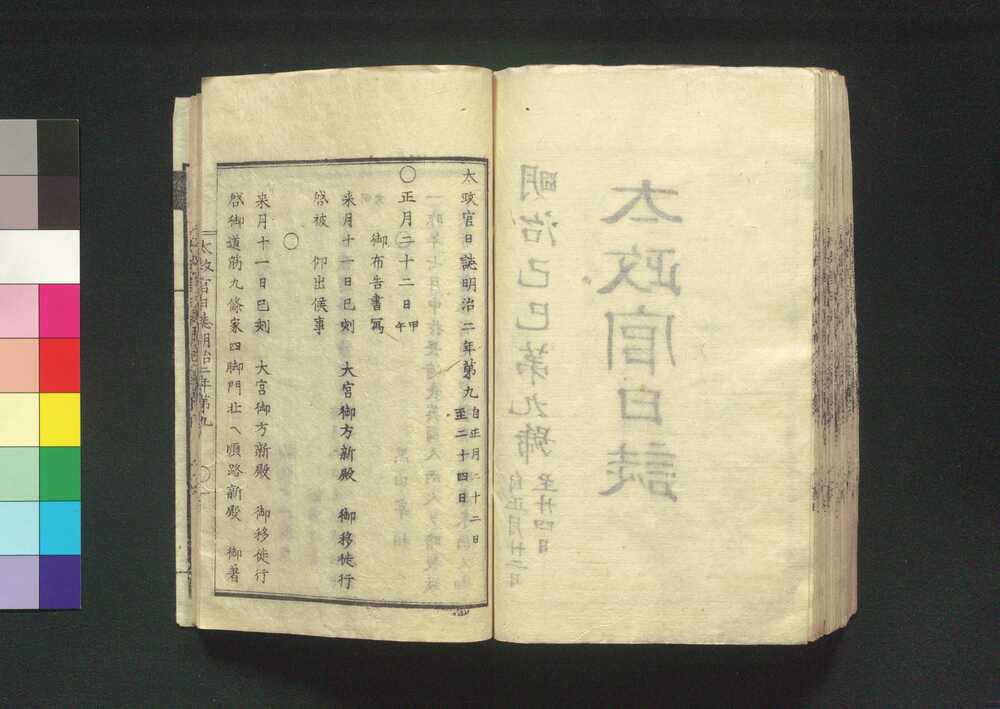 太政官日誌
明治己巳第九號
自正月廿二日
至廿四日
太政官日誌明治二年第九
自正月二十二日
至二十四日
〇正月二十二日
甲午
御布告書寫
来月十一日巳刻 大宮御方新殿 御移徙行
啓被 仰出候事
〇
来月十一日巳刻 大宮御方新殿 御移徙行
啓御道筋九條家四脚門北へ順路新殿 御著
太政官日誌明治二年第九
〇一